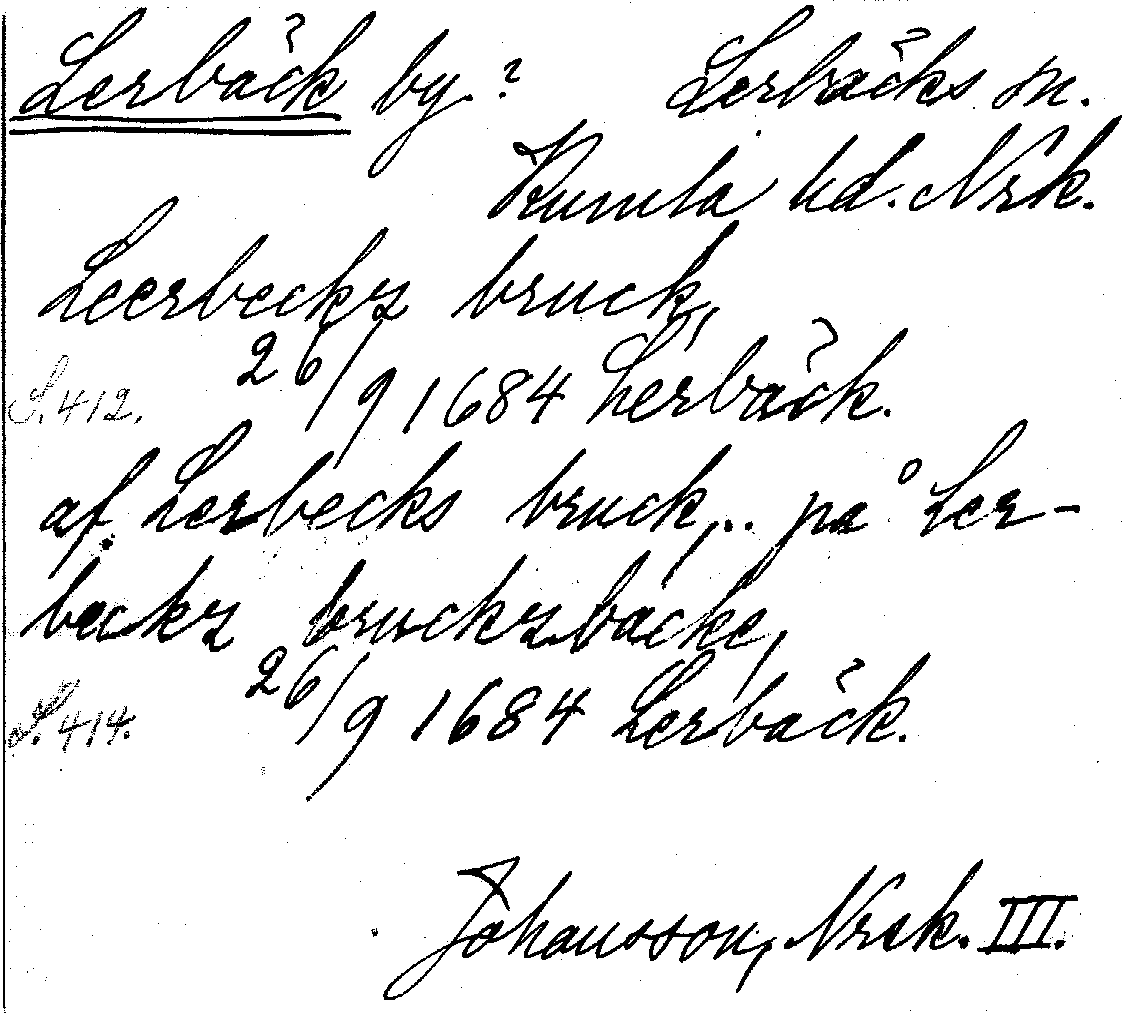 Lerbäck by? Lerbäcks sn.
Kumla hd. Nrk.
Leerbeckz bruck,
S. 412. 26/9 1684 Lerbäck.
af Lerbecks bruck, .. på Ler-
beckz bruckzbacke,
S. 414. 26/9 1684 Lerbäck.
Johansson, Nrk. III.